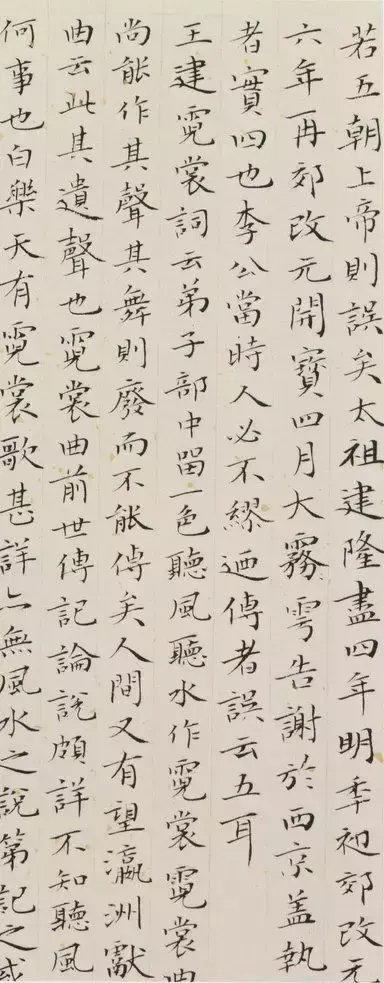 若五朝上帝則誤矣太祖建隆盡四年明年初郊改元
六年再郊改元開寶四月大霧雩告謝於西京盖執
者實四也李公當時人必不繆廼傳者誤云五耳
王建霓裳詞云弟子部中留一色聽風聽水作霓裳霓裳曲
尚能作其聲其舞則廢而不能傳矣人間又有望瀛洲獻
曲云此其遺聲也霓裳曲前世傳記論說頗詳不知聽風
何事也白樂天有霓裳歌甚詳亦無風水之說第記之或